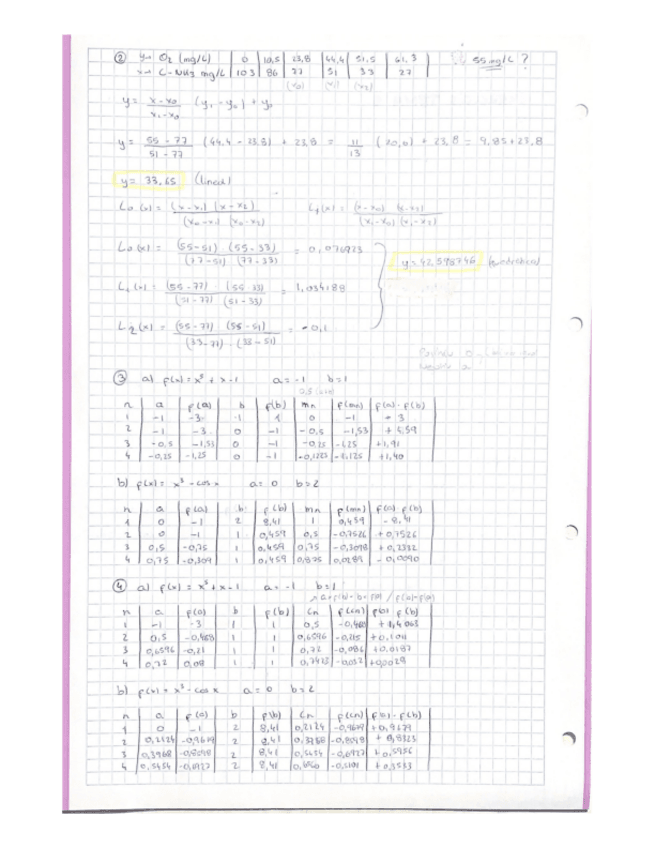 ② y→ O₂ (mg/L) | 0 | 10,5 | 23,8 | 44,4 | 51,5 | 61,3 | 55 mg/L ?
x→ C-NH₂ mg/L | 103 | 86 | 77 | 51 | 33 | 27
(x₀) (x₁) (x₂)
y = (x-x₀)/(x₁-x₀) (y₁-y₀) + y₀
y = (55-77)/(51-77) (44,4 - 23,8) + 23,8 = 11/13 (20,6) + 23,8 = 9,85 + 23,8
y = 33,65 (lineal)
L₀(x) = (x-x₁)(x-x₂)/(x₀-x₁)(x₀-x₂) L₁(x) = (x-x₀)(x-x₂)/(x₁-x₀)(x₁-x₂)
L₀(x) = (55-51)(55-33)/(77-51)(77-33) = 0,076923
y = 42,598746 (cuadrática)
L₁(x) = (55-77)(55-33)/(51-77)(51-33) = 1,034188
L₂(x) = (55-77)(55-51)/(33-77)(33-51) = -0,1
③ a) f(x) = x⁵ + x - 1 a = -1 b = 1
n | a | f(a) | b | f(b) | mn | f(mn) | f(a)·f(b)
1 | -1 | -3 | 1 | 1 | 0 | -1 | -3
2 | -1 | -3 | 0 | -1 | -0,5 | -1,53 | +4,59
3 | -0,5 | -1,53 | 0 | -1 | -0,25 | -1,25 | +1,91
4 | -0,25 | -1,25 | 0 | -1 | -1,125 | +1,40
b) f(x) = x³ - cos x a = 0 b = 2
n | a | f(a) | b | f(b) | mn | f(mn) | f(a)·f(b)
1 | 0 | -1 | 2 | 8,41 | 1 | 0,459 | -8,41
2 | 0 | -1 | 1 | 0,459 | 0,5 | -0,7526 | +0,7526
3 | 0,5 | -0,75 | 1 | 0,459 | 0,75 | -0,3098 | +0,2332
4 | 0,75 | -0,309 | 1 | 0,459 | 0,875 | 0,0289 | -0,0090
④ a) f(x) = x⁵ + x - 1 a = -1 b = 1
n | a | f(a) | b | f(b) | Cn | f(cn) | f(a)·f(b)
1 | -1 | -3 | 1 | 1 | 0,5 | -0,468 | +1,4063
2 | 0,5 | -0,468 | 1 | 1 | 0,6596 | -0,215
3 | 0,6596 | -0,21 | 1 | 1 | 0,72 | -0,086 | +0,0187
4 | 0,72 | 0,08 | 1 | 1 | 0,7423 | -0,032 | +0,0028
b) f(x) = x³ - cos x a = 0 b = 2
n | a | f(a) | b | f(b) | Cn | f(cn) | f(a)·f(b)
1 | 0 | -1 | 2 | 8,41 | 0,2124 | -0,9679 | +0,9679
2 | 0,2124 | -0,9679 | 2 | 8,41 | 0,3968 | -0,8598
3 | 0,3968 | 2 | 8,41 | 0,5454 | -0,6927 | +0,5956
4 | 0,5454 | -0,6927 | 2 | 8,41 | +0,3533